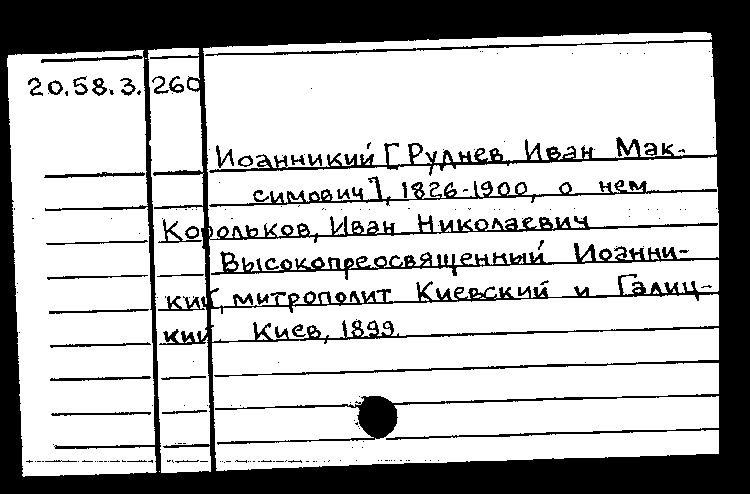 20.58.3. 260
Иоанникий [Руднев, Иван Мак-
симович], 1826-1900, о нем
Корольков, Иван Николаевич
Высокопреосвященный Иоанни-
кий, митрополит Киевский и Галиц-
кий. Киев, 1899.